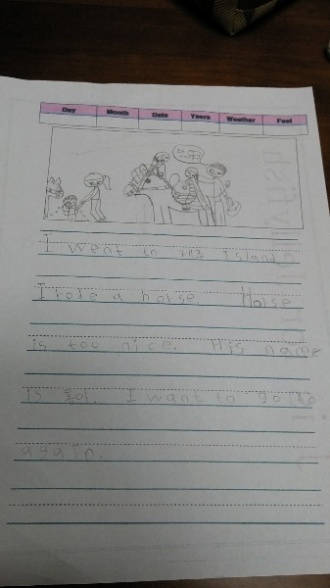 Day Month Date Years Weather Feel
I went to Island
I rode a horse. Horse
is too nice. His name
is I want to go to
again.